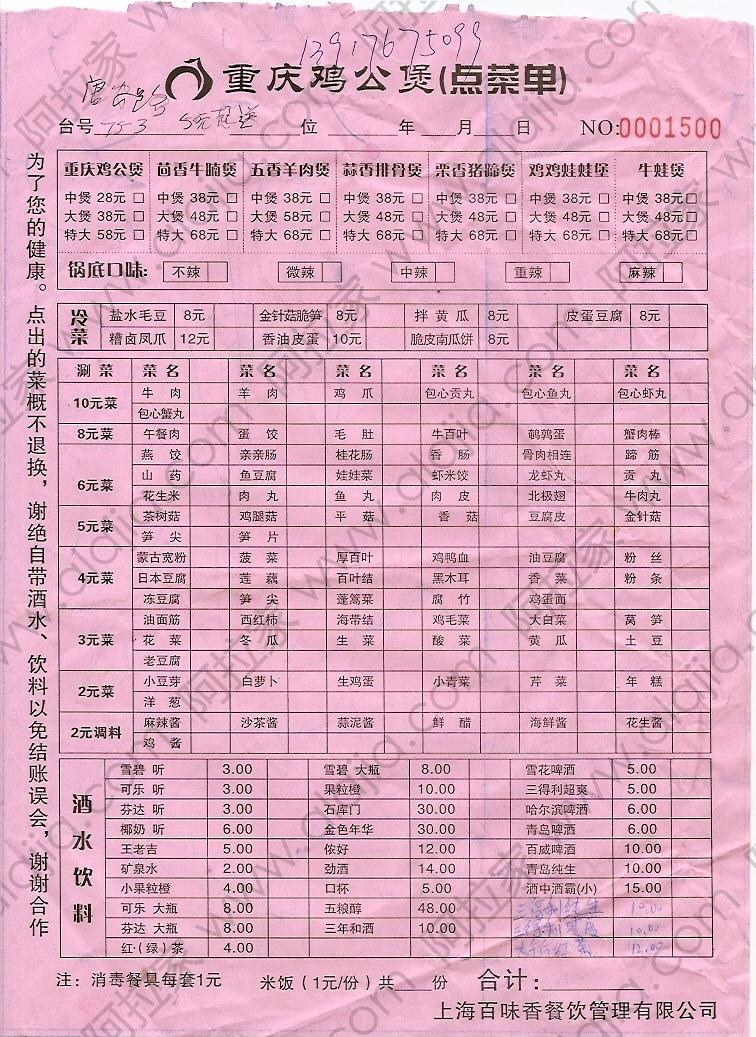 13917675099
重庆鸡公煲(点菜单)
台号 753 5元起送 位 年 月 日 NO:0001500
为了您的健康。点出的菜概不退换，谢绝自带酒水、饮料以免结账误会，谢谢合作
重庆鸡公煲 茴香牛腩煲 五香羊肉煲 蒜香排骨煲 栗香猪蹄煲 鸡鸡蛙蛙堡 牛蛙煲
中煲 28元 □ 中煲 38元 □ 中煲 38元 □ 中煲 38元 □ 中煲 38元 □ 中煲 38元 □ 中煲 38元 □
大煲 38元 □ 大煲 48元 □ 大煲 58元 □ 大煲 48元 □ 大煲 48元 □ 大煲 48元 □ 大煲 48元 □
特大 58元 □ 特大 68元 □ 特大 68元 □ 特大 68元 □ 特大 68元 □ 特大 68元 □ 特大 68元 □
锅底口味: 不辣 微辣 中辣 重辣 麻辣
冷菜
盐水毛豆 8元 金针菇脆笋 8元 拌黄瓜 8元 皮蛋豆腐 8元
糟卤凤爪 12元 香油皮蛋 10元 脆皮南瓜饼 8元
涮菜 菜名 菜名 菜名 菜名 菜名 菜名
10元菜 牛肉 羊肉 鸡爪 包心贡丸 包心鱼丸 包心虾丸
包心蟹丸
8元菜 午餐肉 蛋饺 毛肚 牛百叶 鹌鹑蛋 蟹肉棒
6元菜 燕饺 亲亲肠 桂花肠 香肠 骨肉相连 蹄筋
山药 鱼豆腐 娃娃菜 虾米饺 龙虾丸 贡丸
花生米 肉丸 鱼丸 肉皮 北极翅 牛肉丸
5元菜 茶树菇 鸡腿菇 平菇 香菇 豆腐皮 金针菇
笋尖 笋片
4元菜 蒙古宽粉 菠菜 厚百叶 鸡鸭血 油豆腐 粉丝
日本豆腐 莲藕 百叶结 黑木耳 香菜 粉条
冻豆腐 笋尖 蓬蒿菜 腐竹 鸡蛋面
3元菜 油面筋 西红柿 海带结 鸡毛菜 大白菜 莴笋
花菜 冬瓜 生菜 酸菜 黄瓜 土豆
老豆腐
2元菜 小豆芽 白萝卜 生鸡蛋 小青菜 芹菜 年糕
洋葱
2元调料 麻辣酱 沙茶酱 蒜泥酱 鲜醋 海鲜酱 花生酱
鸡酱
酒水饮料
雪碧 听 3.00 雪碧 大瓶 8.00 雪花啤酒 5.00
可乐 听 3.00 果粒橙 10.00 三得利超爽 5.00
芬达 听 3.00 石库门 30.00 哈尔滨啤酒 6.00
椰奶 听 6.00 金色年华 30.00 青岛啤酒 6.00
王老吉 5.00 侬好 12.00 百威啤酒 10.00
矿泉水 2.00 劲酒 14.00 青岛纯生 10.00
小果粒橙 4.00 口杯 5.00 酒中酒霸(小) 15.00
可乐 大瓶 8.00 五粮醇 48.00 三得利纯生 10.00
芬达 大瓶 8.00 三年和酒 10.00 三得利 10.00
红·(绿)茶 4.00 12.00
注: 消毒餐具每套1元 米饭 (1元/份) 共 份 合计:
上海百味香餐饮管理有限公司
阿拉家 www.alajia.com